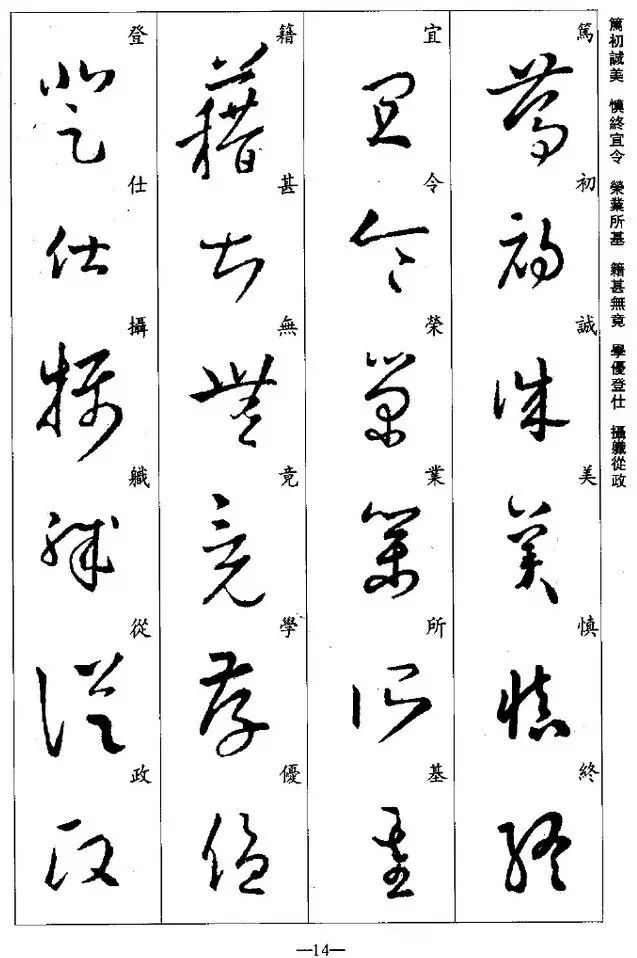 篤初誠美 慎終宜令 榮業所基 籍甚無竟 學優登仕 攝職從政
篤初誠美慎終
宜令榮業所基
籍甚無竟學優
登仕攝職從政
—14—